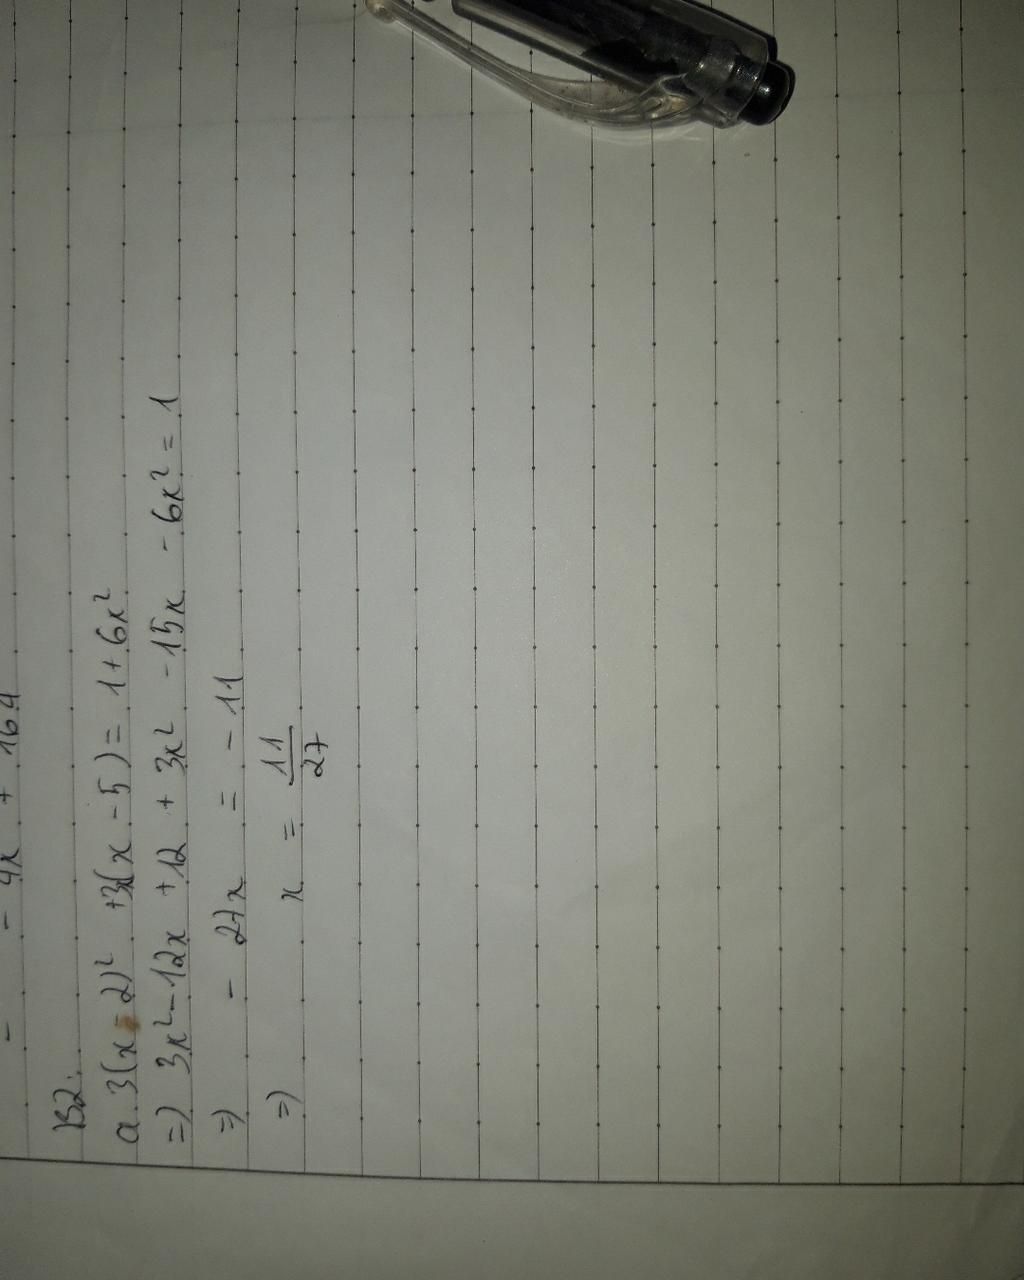 - 4x + 164
B2:
a. 3(x-2)² +3(x-5) = 1+6x²
=) 3x²-12x+12+3x²-15x-6x²=1
=) - 27x = -11
=) x = 11/27